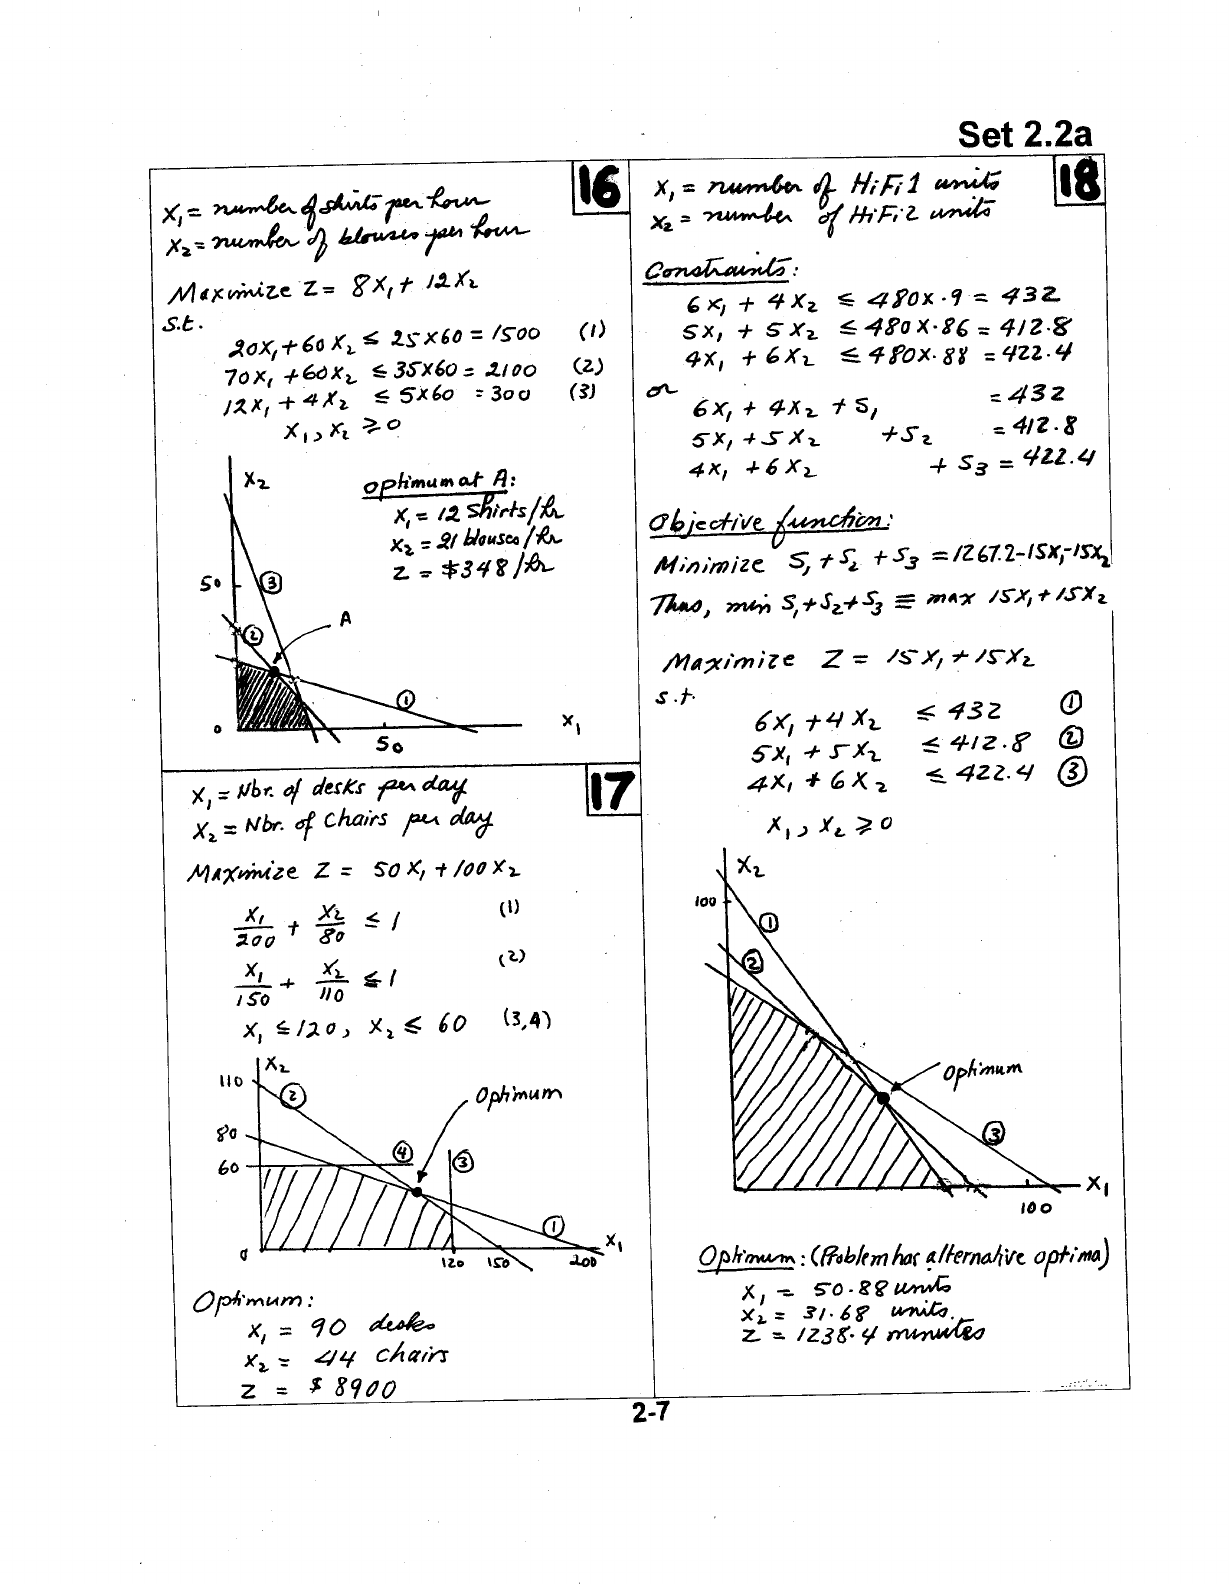 Set 2.2a
16
X₁ = number of shirts per hour
X₂ = number of blouses per hour
Maximize Z = 8X₁ + 12X₂
S.t.
20X₁ + 60X₂ ≤ 25x60 = 1500 (1)
70X₁ + 60X₂ ≤ 35x60 = 2100 (2)
12X₁ + 4X₂ ≤ 5x60 = 300 (3)
X₁, X₂ ≥ 0
X₂
optimum at A:
X₁ = 12 Shirts/hr
X₂ = 21 blouses/hr
Z = $348/hr
50
3
2
A
1
0
50
X₁
17
X₁ = Nbr. of desks per day
X₂ = Nbr. of chairs per day
Maximize Z = 50X₁ + 100X₂
X₁/200 + X₂/80 ≤ 1 (1)
X₁/150 + X₂/110 ≤ 1 (2)
X₁ ≤ 120, X₂ ≤ 60 (3,4)
X₂
110
2
Optimum
80
4
60
3
1
0
120 150 200
X₁
Optimum:
X₁ = 90 desks
X₂ = 44 chairs
Z = $8900
18
X₁ = number of HiFi1 units
X₂ = number of HiFi2 units
Constraints:
6X₁ + 4X₂ ≤ 480x.9 = 432
5X₁ + 5X₂ ≤ 480x.86 = 412.8
4X₁ + 6X₂ ≤ 480x.88 = 422.4
or
6X₁ + 4X₂ + S₁ = 432
5X₁ + 5X₂ + S₂ = 412.8
4X₁ + 6X₂ + S₃ = 422.4
Objective function:
Minimize S₁ + S₂ + S₃ = 1267.2-15X₁-15X₂
Thus, min S₁+S₂+S₃ ≡ max 15X₁+15X₂
Maximize Z = 15X₁ + 15X₂
s.t.
6X₁ + 4X₂ ≤ 432 ①
5X₁ + 5X₂ ≤ 412.8 ②
4X₁ + 6X₂ ≤ 422.4 ③
X₁, X₂ ≥ 0
X₂
100
1
2
Optimum
3
X₁
100
Optimum: (Problem has alternative optima)
X₁ = 50.88 units
X₂ = 31.68 units.
Z = 1238.4 minutes
2-7